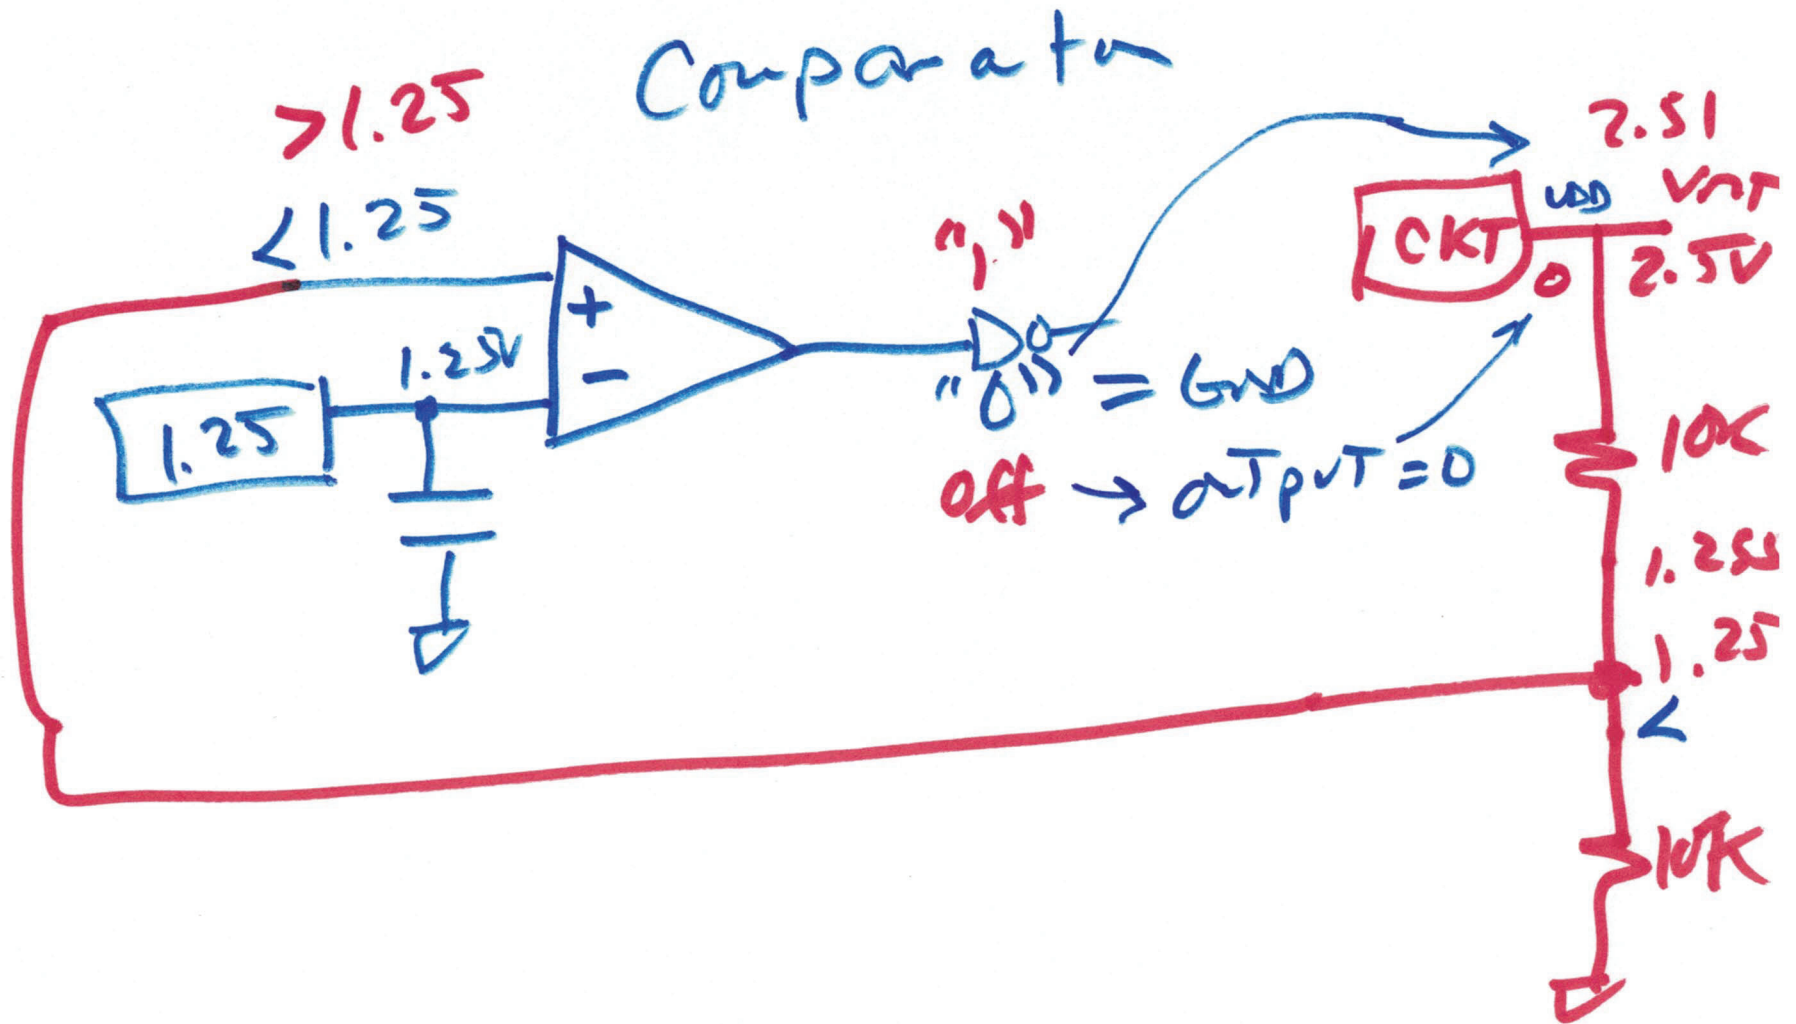 Comparator
>1.25
<1.25
1.25V
1.25
+
-
"1"
"0" = GND
Off → OUTPUT = 0
2.51
VOUT
VDD
CKT
0
2.5V
10K
1.25
<
10K